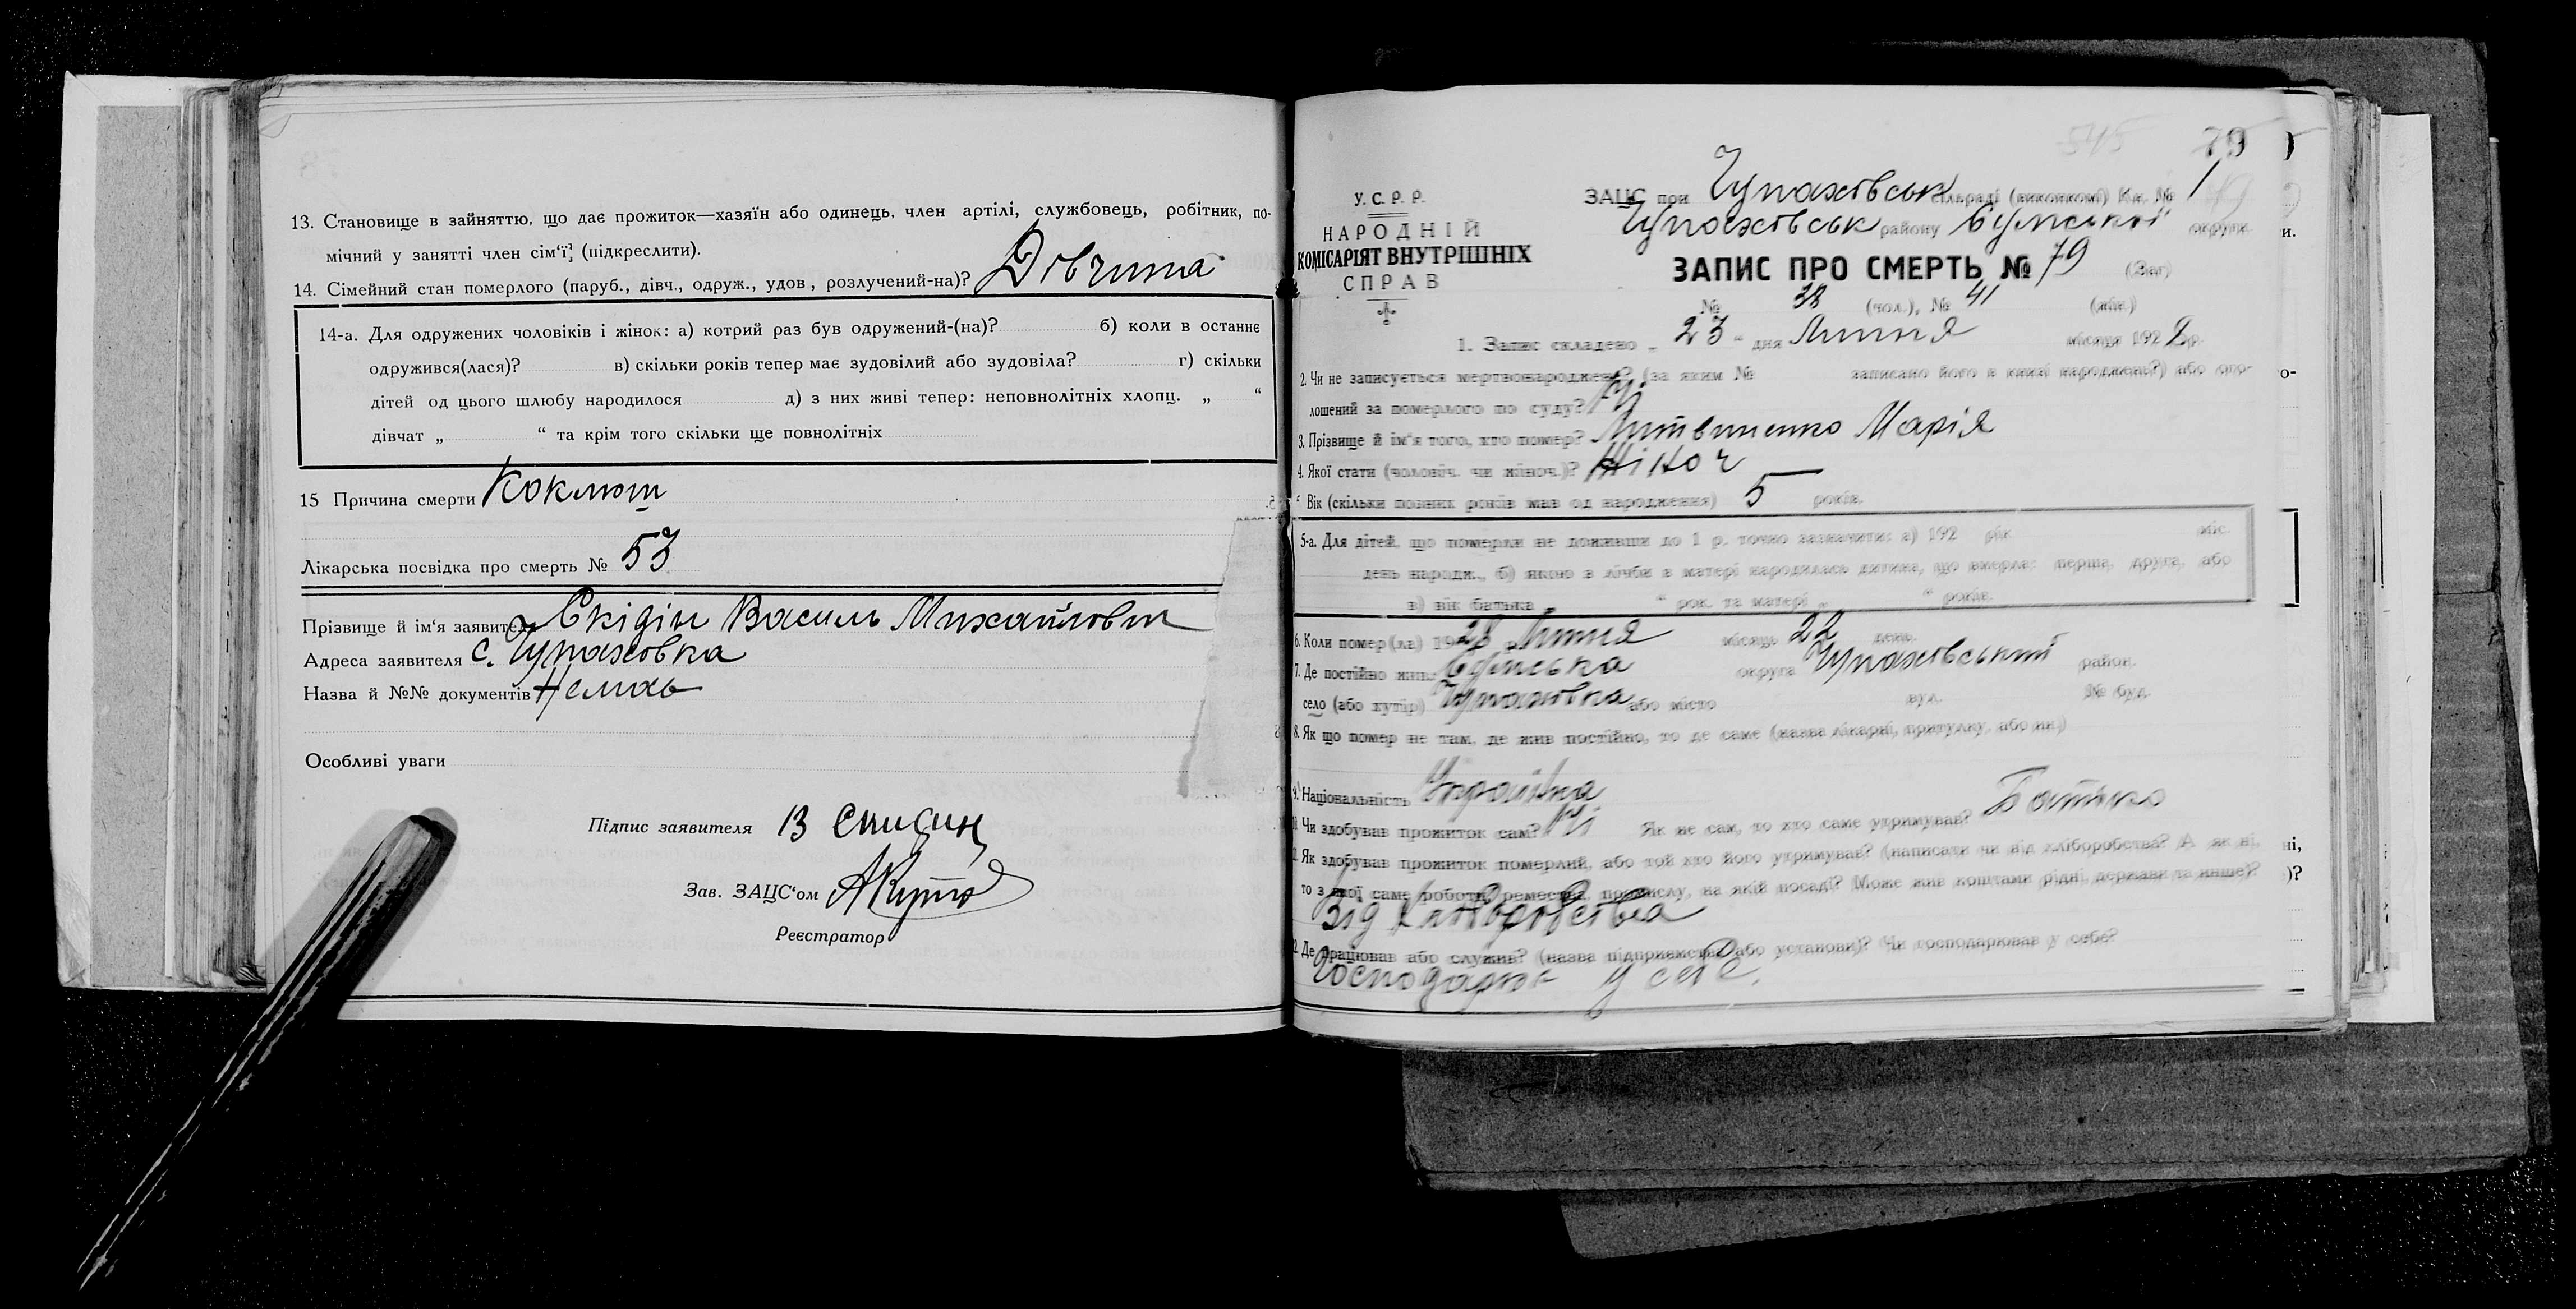 13. Становище в зайняттю, що дає прожиток—хазяїн або одинець, член артілі, службовець, робітник, по-
мічний у занятті член сім'ї (підкреслити).
14. Сімейний стан померлого (паруб., дівч., одруж., удов., розлучений-на)? Дівчина
14-а. Для одружених чоловіків і жінок: а) котрий раз був одружений-(на)? б) коли в останнє
одружився(лася)? в) скільки років тепер має зудовілий або зудовіла? г) скільки
дітей од цього шлюбу народилося д) з них живі тепер: неповнолітніх хлопц. „ “
дівчат „ “ та крім того скільки ще повнолітніх
15 Причина смерти Коклюш
Лікарська посвідка про смерть № 53
Прізвище й ім'я заявителя Скідін Василь Михайлович
Адреса заявителя с. Чупахівка
Назва й №№ документів Немає
Особливі уваги
Підпис заявителя В Скидин
Зав. ЗАЦС'ом
Реєстратор
545 79
У. С. Р. Р.
НАРОДНІЙ
КОМІСАРІЯТ ВНУТРІШНІХ
СПРАВ
ЗАЦС при Чупахівськ сільраді (виконкомі) Кн. № 1
Чупахівськ району Сумської округи.
ЗАПИС ПРО СМЕРТЬ № 79 (Заг)
№ 38 (чол.), № 41 (жін.)
1. Запис складено „ 23 “ дня Липня місяця 1928 р.
2. Чи не записується мертвонароджен? (за яким № записано його в книзі народжень?) або ого-
лошений за померлого по суду? Ні
3. Прізвище й ім'я того, хто помер? Литвиненко Марія
4. Якої стати (чоловіч. чи жіноч.)? Жіноч
5 Вік (скільки повних років мав од народження) 5 років.
5-а. Для дітей, що померли не доживши до 1 р. точно зазначити: а) 192 рік міс.
день народж., б) якою з лічби в матері народилась дитина, що вмерла: перша, друга, або
в) вік батька „ “ рок. та матері „ “ років.
6. Коли помер(ла) 1928 Липня місяць 22 день.
7. Де постійно жив: Сумська округа Чупахівський район.
село (або хутір) Чупахівка або місто вул. № буд.
8. Як що помер не там, де жив постійно, то де саме (назва лікарні, притулку, або ин.)
9. Національність Українка
Чи здобував прожиток сам? Ні Як не сам, то хто саме утримував? Батько
Як здобував прожиток померлий, або той хто його утримував? (написати чи від хліборобства? А як ні,
то з якої саме роботи, ремества, промислу, на якій посаді? Може жив коштами рідні, держави та инше)?
Від хліборобства
Де працював або служив? (назва підприємства або установи)? Чи господарював у себе?
у себе.